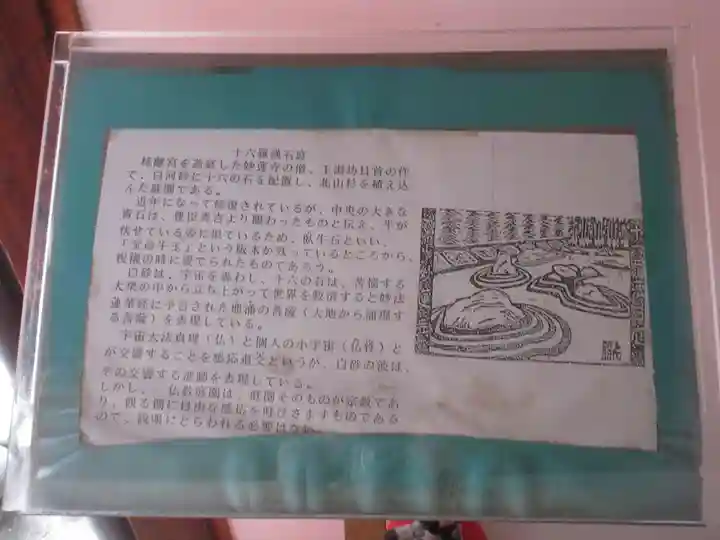 十六羅漢石庭
桂離宮を造庭した妙蓮寺の僧、玉淵坊日首の作
で、白河砂に十六の石を配置し、北山杉を植え込
んだ庭園である。
近年になって修復されているが、中央の大きな
青石は、豊臣秀吉より賜わったものと伝え、牛が
伏せている姿に似ているため、臥牛石といい、
「宝命牛玉」という版木が残っているところから、
祝儀の時に愛でられたものであろう。
白砂は、宇宙を表わし、十六の石は、苦悩する
大衆の中から立ち上がって世界を救済すると妙法
蓮華経に予言された地涌の菩薩（大地から涌現す
る菩薩）を表現している。
宇宙大法真理（仏）と個人の小宇宙（仏性）と
が交響することを感応道交というが、白砂の波は、
その交響する波動を表現している。
しかし、仏教庭園は、庭園そのものが宗教であ
り、観る側に自由な感応を呼びさますものである
ので、説明にとらわれる必要はない